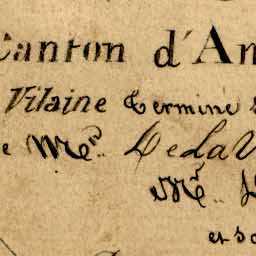 Canton d'An
Vilaine Terminé
e Mr. DeLaV
Mr.
et sc